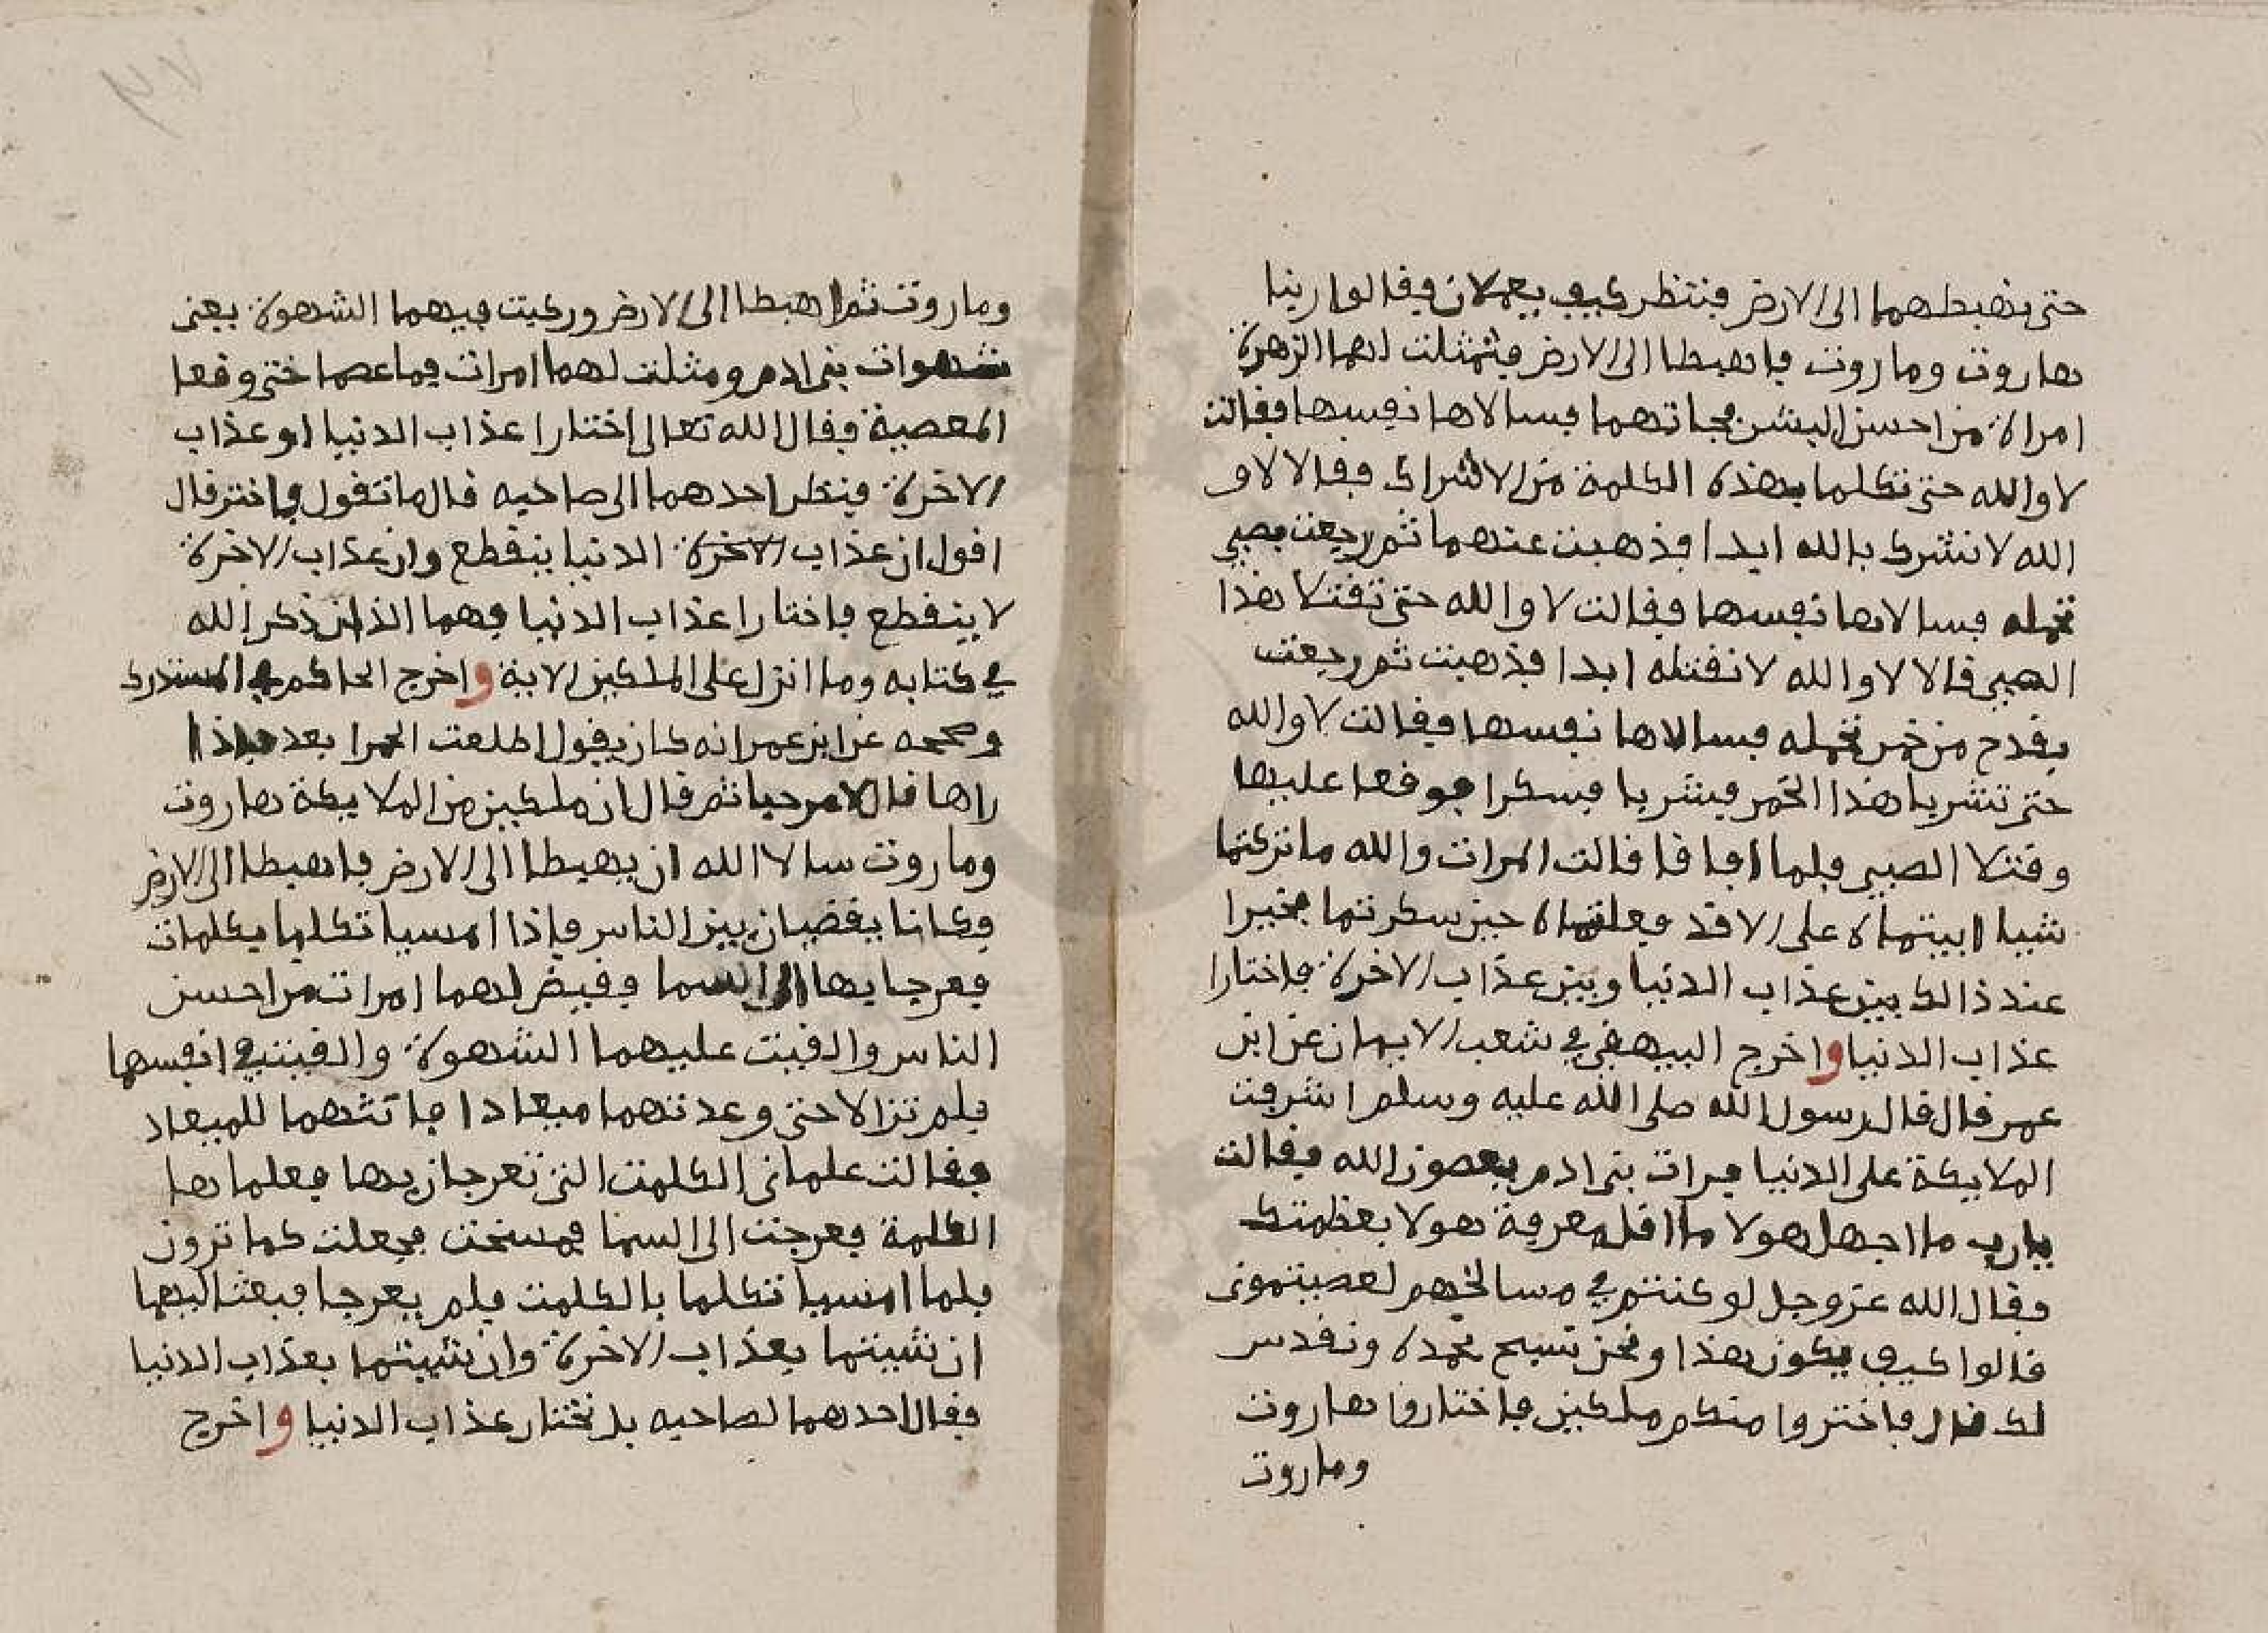 حتى نهبطهما الى الارض فننظر كيف يعملان فقالوا ربنا
هاروت وماروت فاهبطا الى الارض فتمثلت لهما الزهرة
امراة من احسن البشر فجاتهما فسالاها نفسها فقالت
لا والله حتى تكلما بهذه الكلمة من الاشراك فقالا لا و
الله لا نشرك بالله ابدا فذهبت عنهما ثم رجعت بصبي
تحمله فسالاها نفسها فقالت لا والله حتى تقتلا هذا
الصبي قالا لا والله لا نقتله ابدا فذهبت ثم رجعت
بقدح من خمر تحمله فسالاها نفسها فقالت لا والله
حتى تشربا هذا الخمر فشربا فسكرا فوقعا عليها
وقتلا الصبي فلما افاقا قالت المرات والله ما تركتما
شيا ابيتماه على الا قد فعلتماه حين سكرتما فخيرا
عند ذالك بين عذاب الدنيا وبين عذاب الاخرة فاختارا
عذاب الدنيا واخرج البيهقي في شعب الايمان عن ابن
عمر قال قال رسول الله صلى الله عليه وسلم اشرفت
الملايكة على الدنيا فرات بني ادم يعصون الله فقالت
يارب ما اجهل هولا ما اقل معرفة هولا بعظمتك
فقال الله عز وجل لو كنتم في مسالخهم لعصيتموني
قالوا كيف يكون هذا ونحن نسبح بحمدك ونقدس
لك قال فاختروا منكم ملكين فاختاروا هاروت
وماروت
وماروت ثم اهبطا الى الارض وركبت فيهما الشهوة يعني
شهوات بني ادم ومثلت لهما امرات فما عصما حتى وقعا
المعصية فقال الله تعالى اختارا عذاب الدنيا او عذاب
الاخرة فنظر احدهما الى صاحبه قال ما تقول فاختر قال
اقول ان عذاب الاخرة الدنيا ينقطع وان عذاب الاخرة
لا ينقطع فاختارا عذاب الدنيا فهما الذان ذكر الله
في كتابه وما انزل على الملكين الاية واخرج الحاكم في المستدرك
وصححه عن ابن عمر انه كان يقول اطلعت الحمرا بعد فاذا
راها قال لا مرحبا ثم قال ان ملكين من الملايكة هاروت
وماروت سالا الله ان يهبطا الى الارض فاهبطا الى الارض
فكانا يقضيان بين الناس فاذا امسيا تكلما بكلمات
فعرجا بها الى السما فقيض لهما امرات من احسن
الناس والقيت عليهما الشهوة والقيت في انفسهما
فلم تزالا حتى وعدتهما ميعادا فاتتهما للميعاد
فقالت علماني الكلمت التي تعرجان بها فعلماها
الكلمة فعرجت الى السما فمسخت فجعلت كما ترون
فلما امسيا تكلما بالكلمت فلم يعرجا فبعث اليهما
ان شيتما بعذاب الاخرة وان شيتما بعذاب الدنيا
فقال احدهما لصاحبه بل نختار عذاب الدنيا واخرج